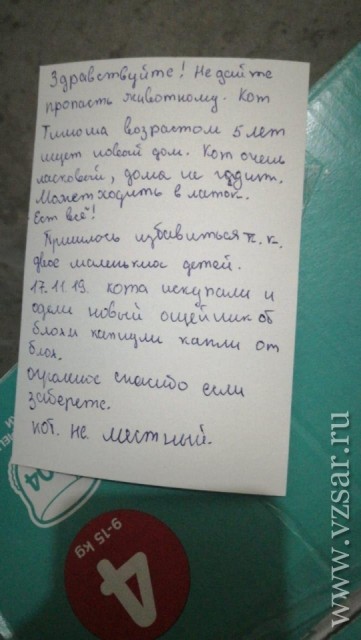 Здравствуйте! Не дайте
пропасть животному. Кот
Тимоша возрастом 5 лет
ищет новый дом. Кот очень
ласковый, дома не гадит.
Может ходить в лоток.
Ест всё!
Пришлось избавиться т.к.
двое маленьких детей.
17.11.19. кота искупали и
одели новый ошейник от
блох и капнули капли от
блох.
Огромное спасибо если
заберете.
Кот не местный.
04
4
9-15 kg
www.vzsar.ru